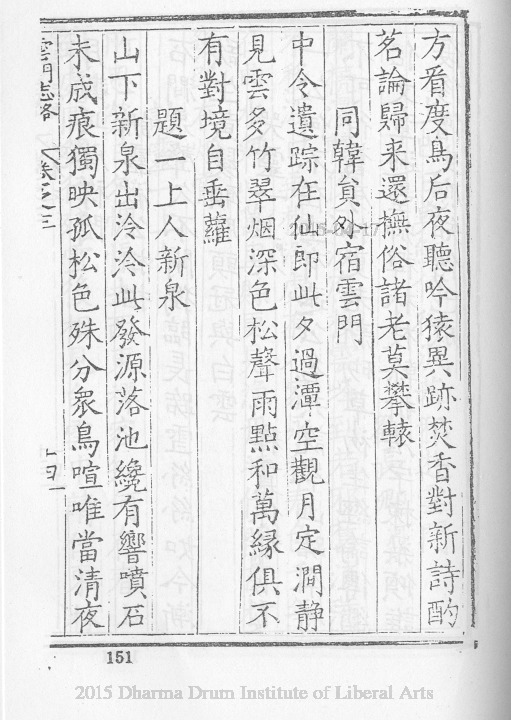 方看度鳥后夜聽吟猿異跡焚香對新詩酌
茗論歸来還撫俗諸老莫攀轅
同韓負外宿雲門
中令遺踪在仙郎此夕過潭空觀月定澗静
見雲多竹翠烟深色松聲雨點和萬縁俱不
有對境自垂蘿
題一上人新泉
山下新泉出泠泠此發源落池纔有響噴石
未成痕獨映孤松色殊分衆鳥喧唯當清夜
雲門志略 卷之三
151
2015 Dharma Drum Institute of Liberal Arts